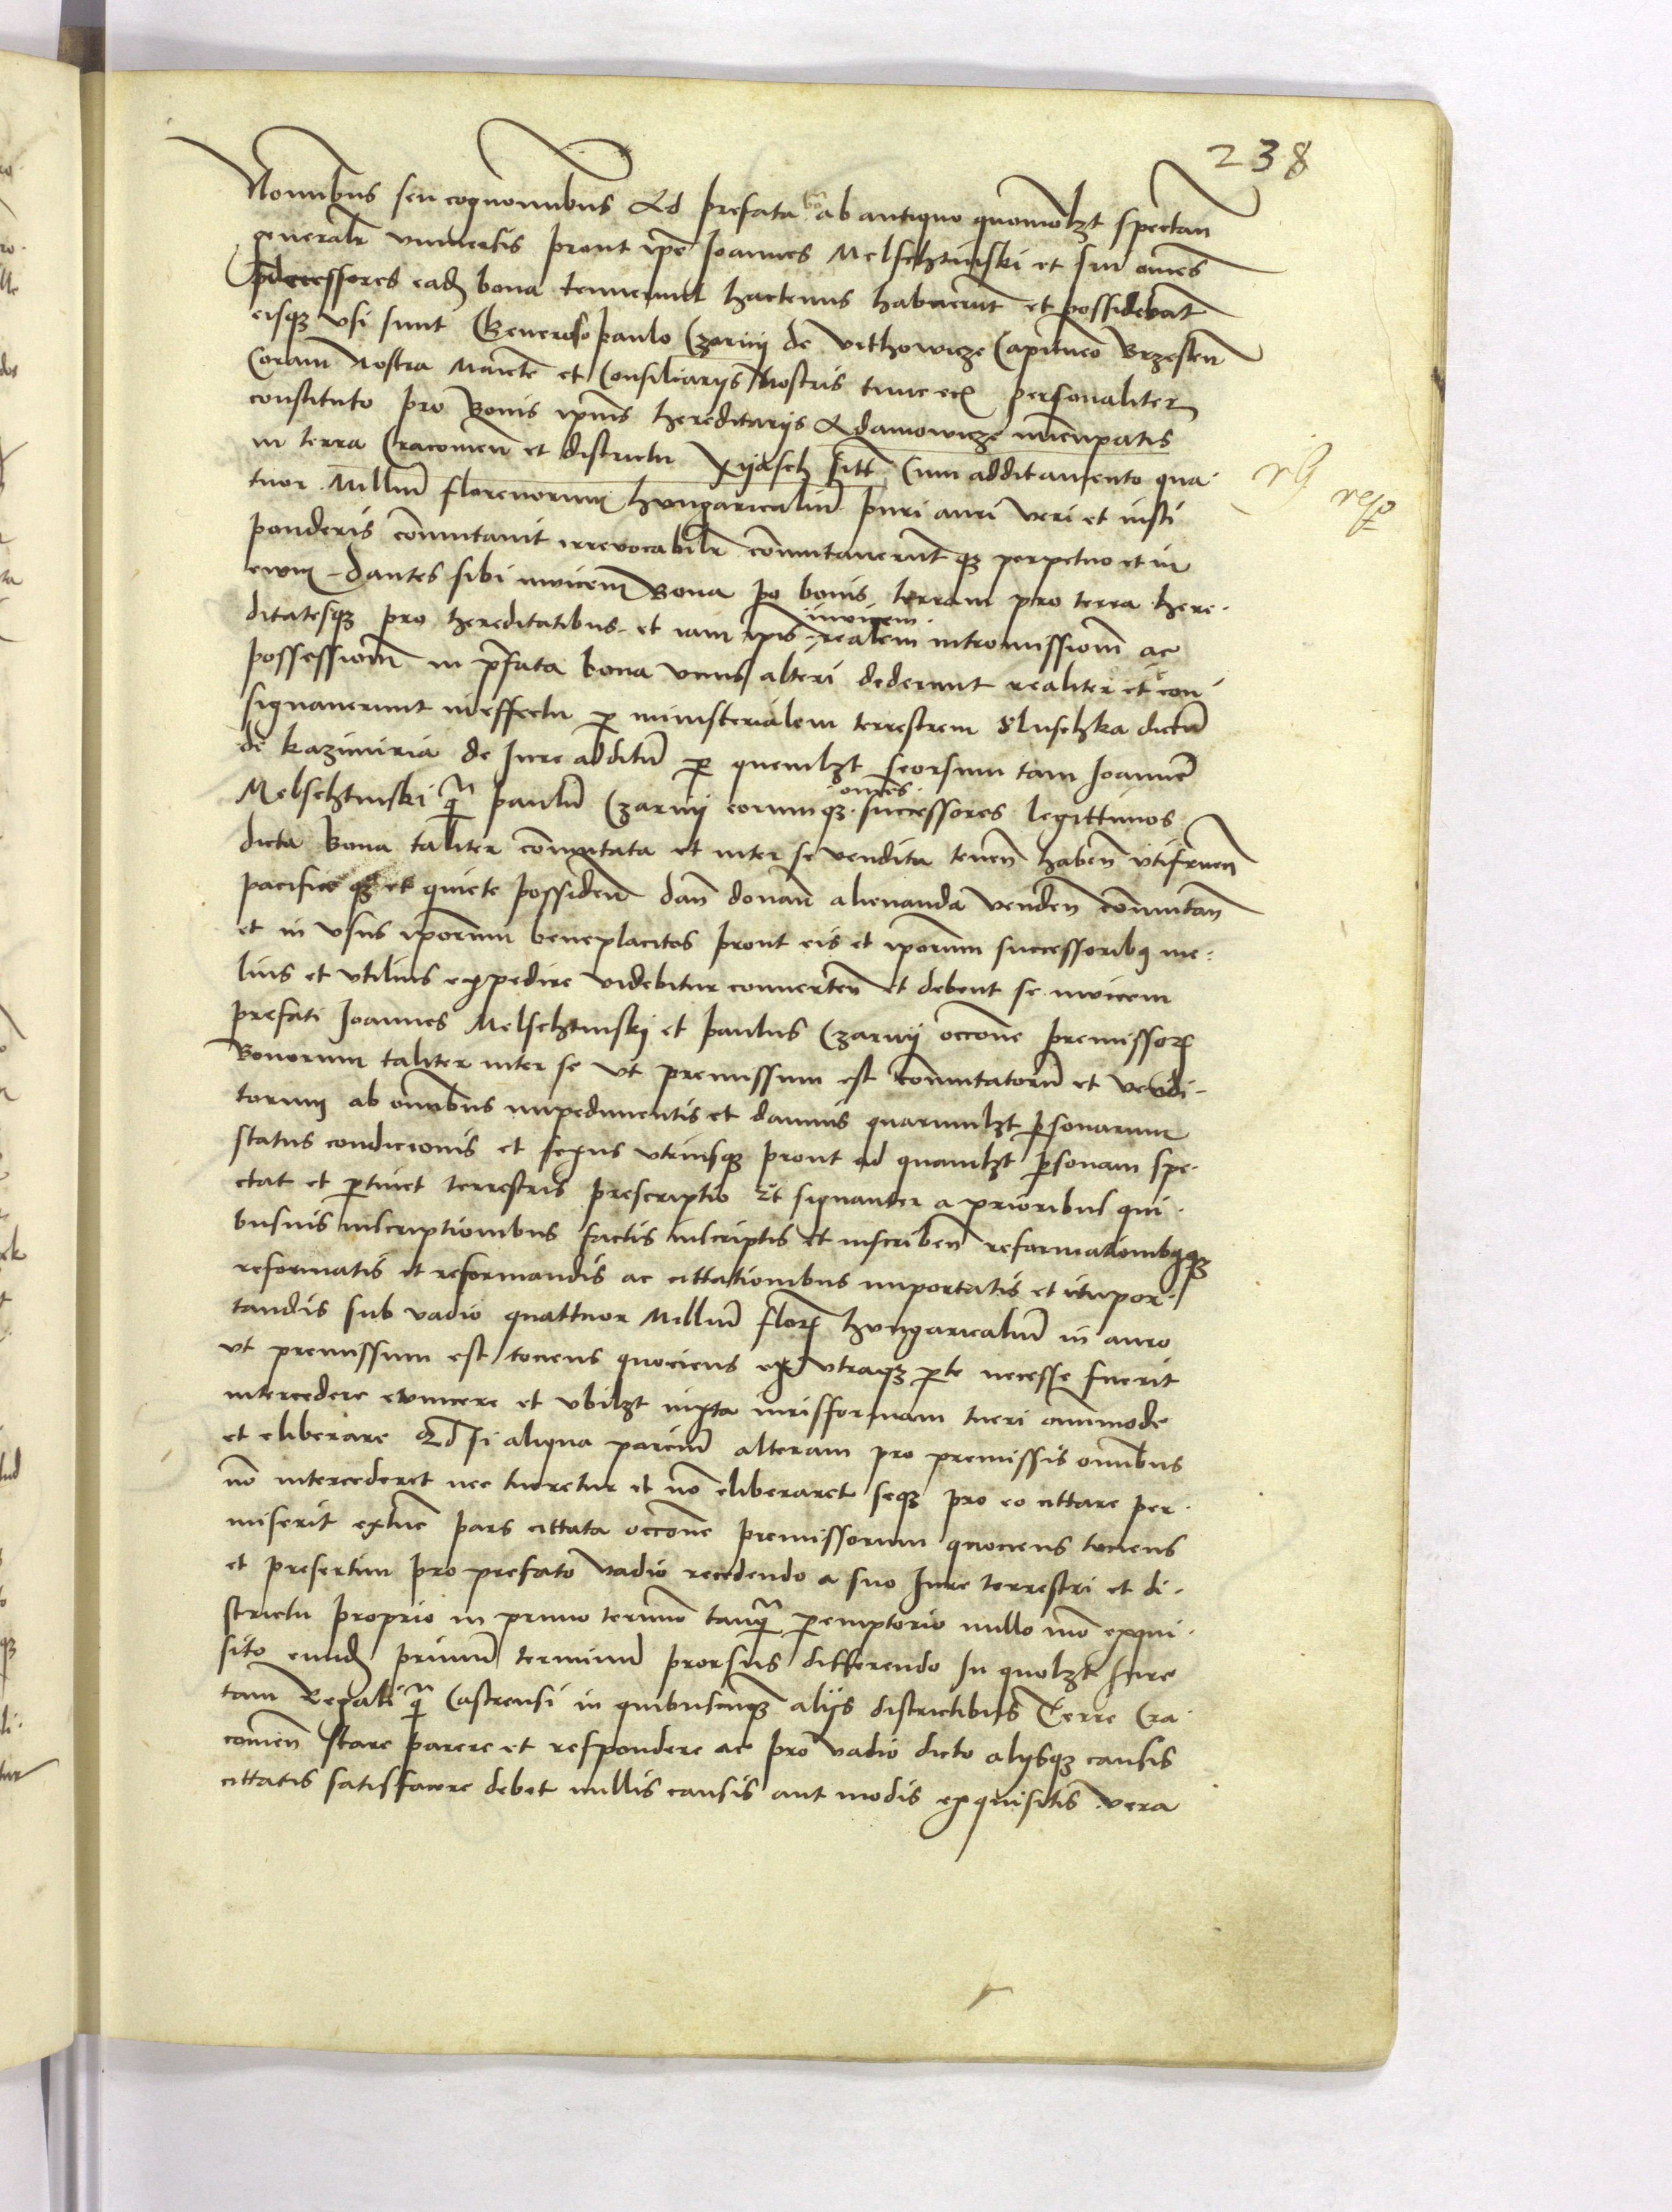 238
Nominibus seu cognominibus Ad prefata bona ab antiquo quomolzt spectan
generalr universis prout ipe Joannes Melschtinski et sui omes
pdecessores eadz bona tenuerunt hactenus habuerunt et possidebant
eisqz usi sunt Generoso Paulo Czarnij de Vithowicze Capitneo Brzesten
Coram Nostra Maiestte et Consiliarijs Nostris tunc personaliter
constituto pro Bonis ipius hereditarijs Adamowicze nuncupatis
in terra Cracovien et districtu Xijasch sitt Cum additamento qua
tuor Millium florenorum hungaricalium puri auri veri et iusti
ponderis commutavit irrevocabilr commutaverunt qz perpetuo et in
evum dantes sibi invicem Bona pro bonis terram pro terra here
ditatesqz pro hereditatibus et iam ipis invicem realem intromissionem ac
possessionem in prefata bona unus alteri dederunt realiter et con
signaverunt in effectu per ministerialem terrestrem Sluschka dictum
de Kazimiria de Jure additum per quemlzt seorsum tam Joannem
Melschtinski qm Paulum Czarnij eorumqz omnes successores legittimos
dicta Bona taliter commutata et inter se vendita tenen haben utifruen
pacifice qz et quiete possiden dan donan alienanda venden commutan
et in usus ipsorum beneplacitos prout eis et ipsorum successoribus me
lius et utilius expedire videbitur converten et debent se invicem
prefati Joannes Melschtinski et Paulus Czarnij occone premissorum
Bonorum taliter inter se ut premissum est commutatorum et vendi
torum ab omnibus impedimentis et damnis quarumlzt personarum
status condicionis et sexus utriusqz prout ad quamlzt personam spe
ctat et pertinet terrestris prescriptio Et signanter a prioribus qui
busvis inscriptionibus factis inscriptis et inscriben reformationibusqz
reformatis et reformandis ac cittationibus importatis et impor
tandis sub vadio quattuor Millium floren hungaricalium in auro
ut premissum est tociens quociens ex utraqz parte necesse fuerit
intercedere evincere et ubilzt iuxta iurisformam tueri omnimode
et eliberare Ad si aliqua parcium alteram pro premissis omnibus
non intercederet nec tueretur et non eliberaret seqz pro eo cittare per
miserit extunc pars cittata occone premissorum quociens tociens
et presertim pro prefato vadio recedendo a suo Jure terrestri et di
strictu proprio in primo termino tanqm peremptorio nullo modo exqui
sito eundz primum terminum prorsus differendo In quolzt Jure
tam Regali qm Castrensi in quibuscunqz alijs districtibus Terre Cra
covien stare parere et respondere ac pro vadio dicto alijsqz causis
cittatis satisfacere debet nullis causis aut modis exquisitis vera